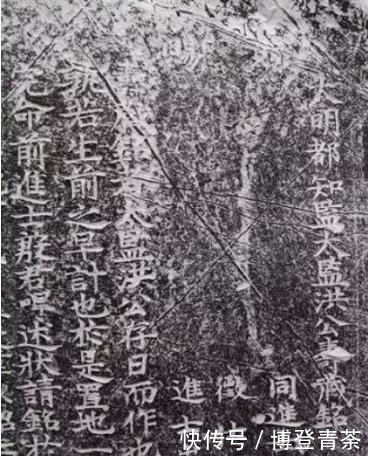 大明都知監太監洪公壽藏銘
同進
徵
賜進
太監洪公存日而作也
孰若生前之早計也於是置地一
命前進士殷君述狀請銘狀
快传号 / 博登青茶